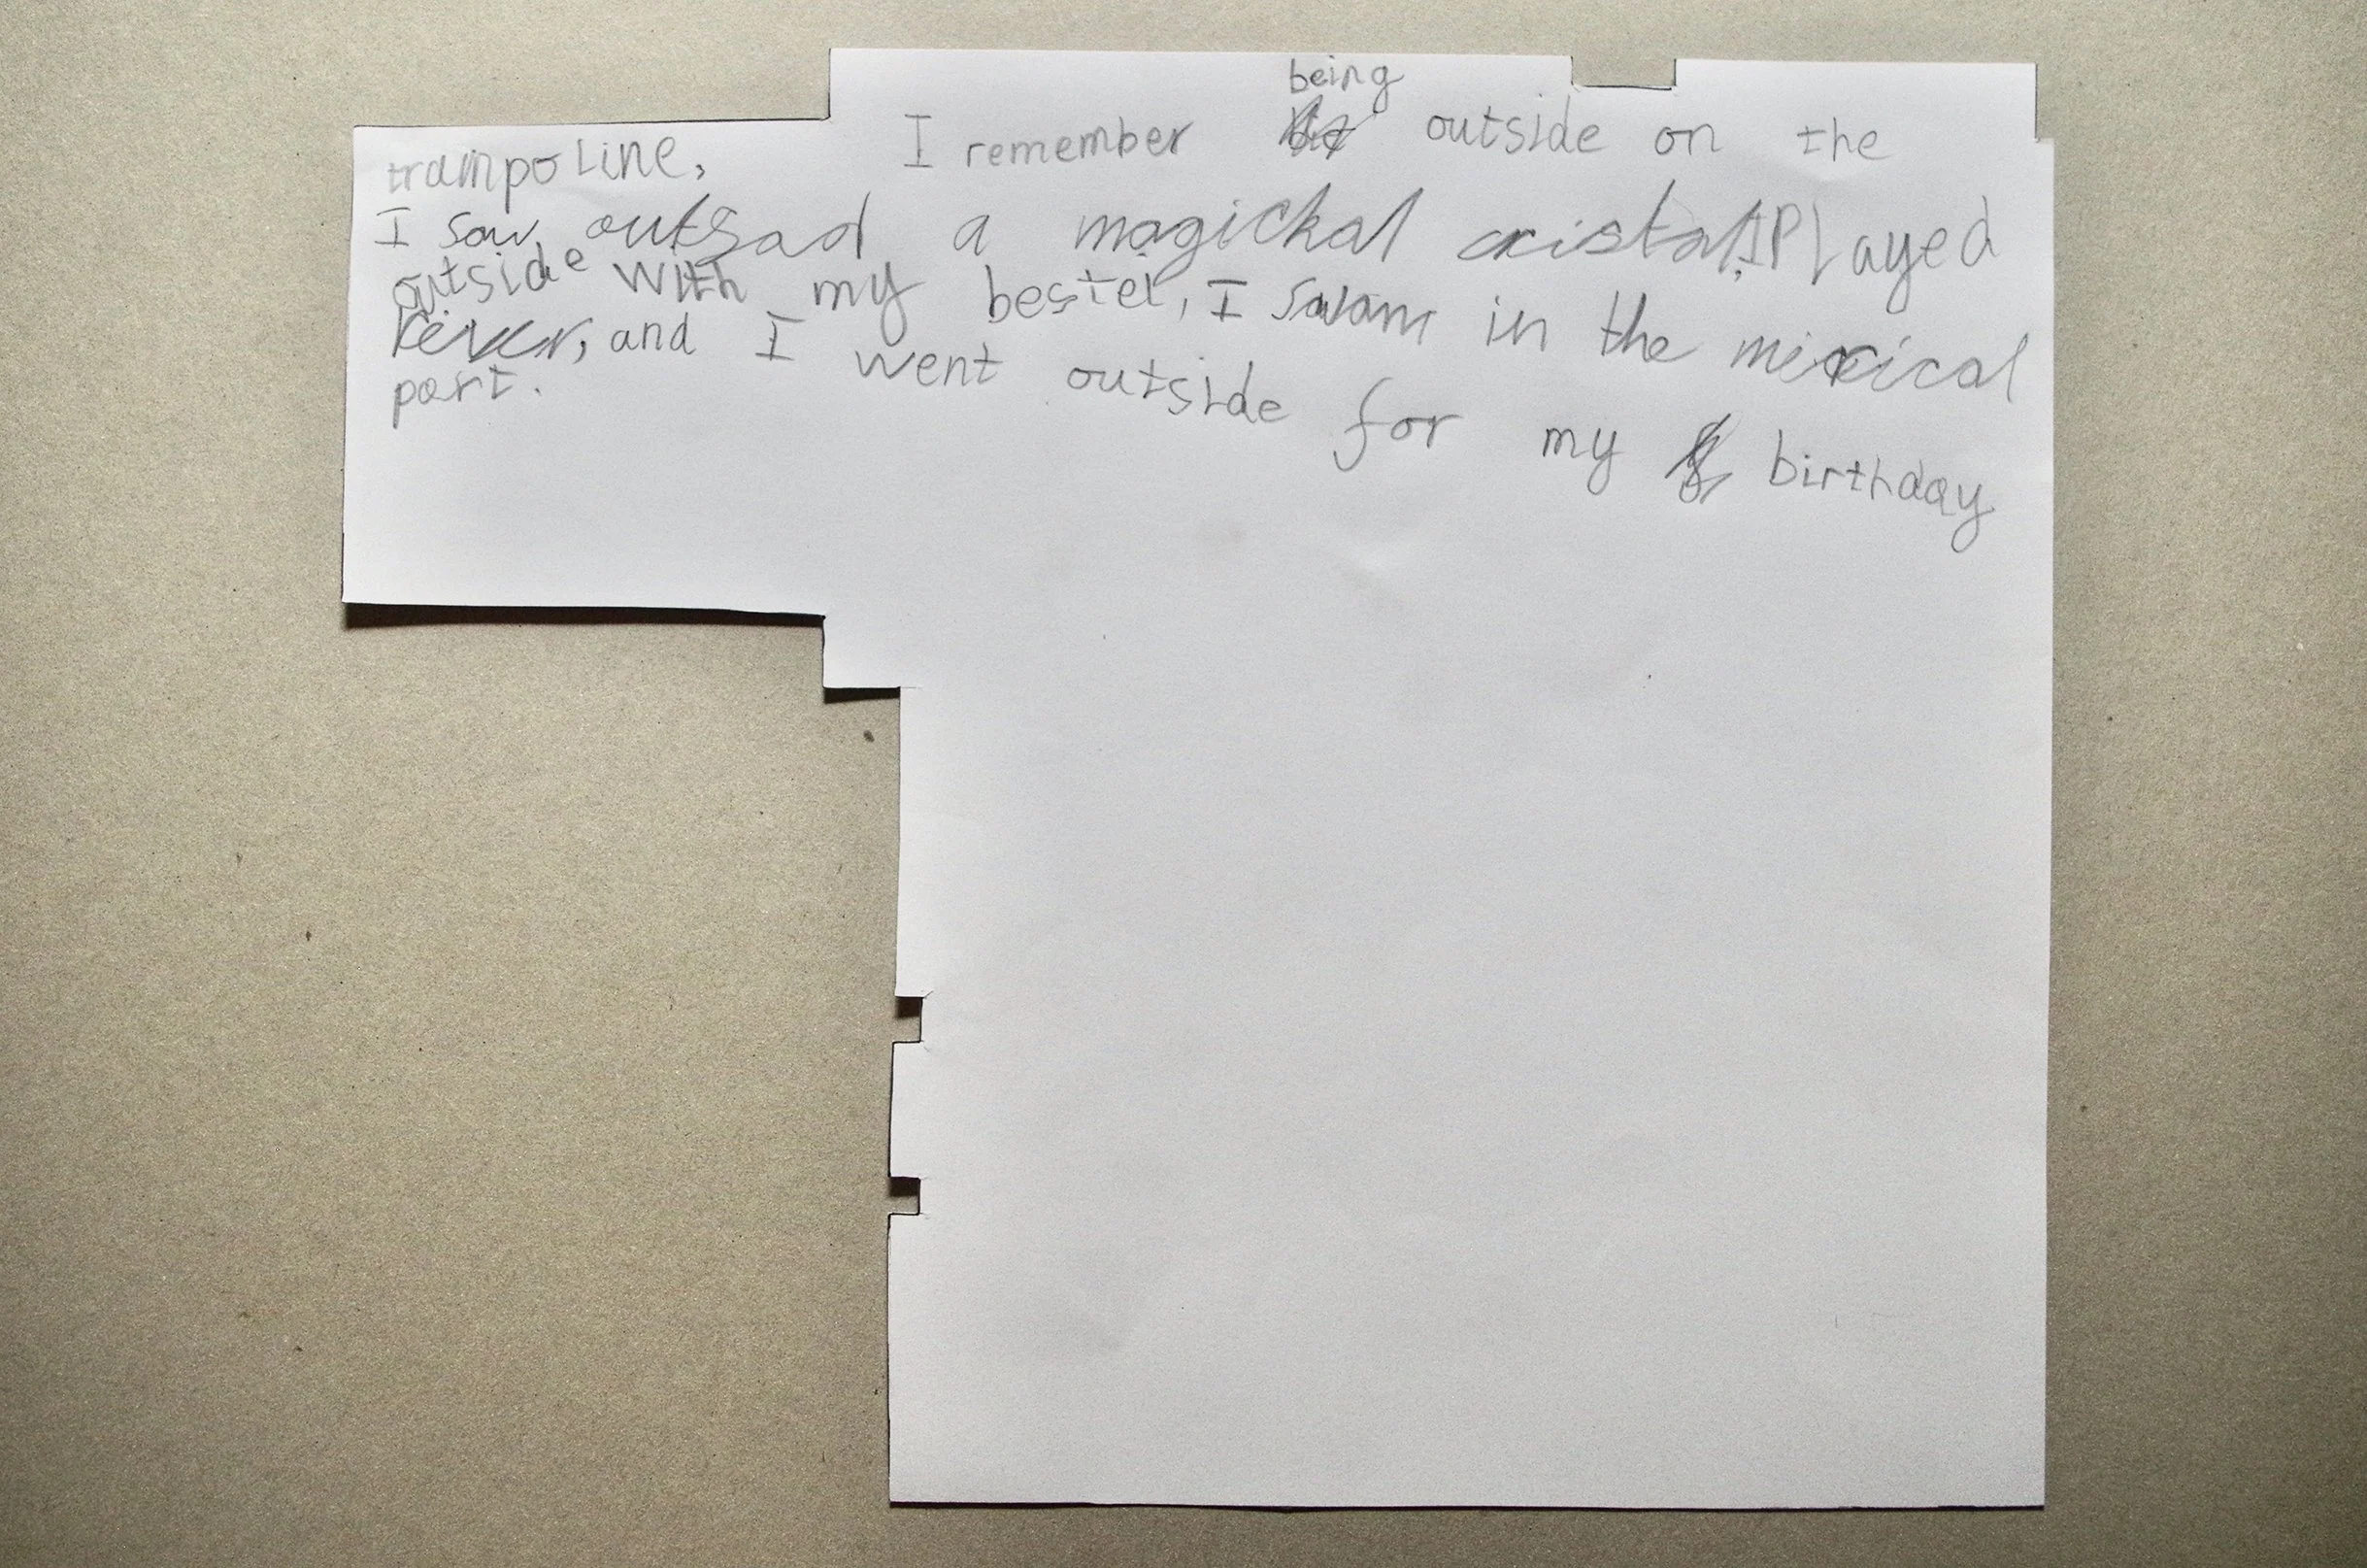 being
I remember outside on the
trampoline,
I saw outsad a magickal cristal, I Played
outside with my bestei, I swam in the mexical
rever, and I went outside for my birthday
part.